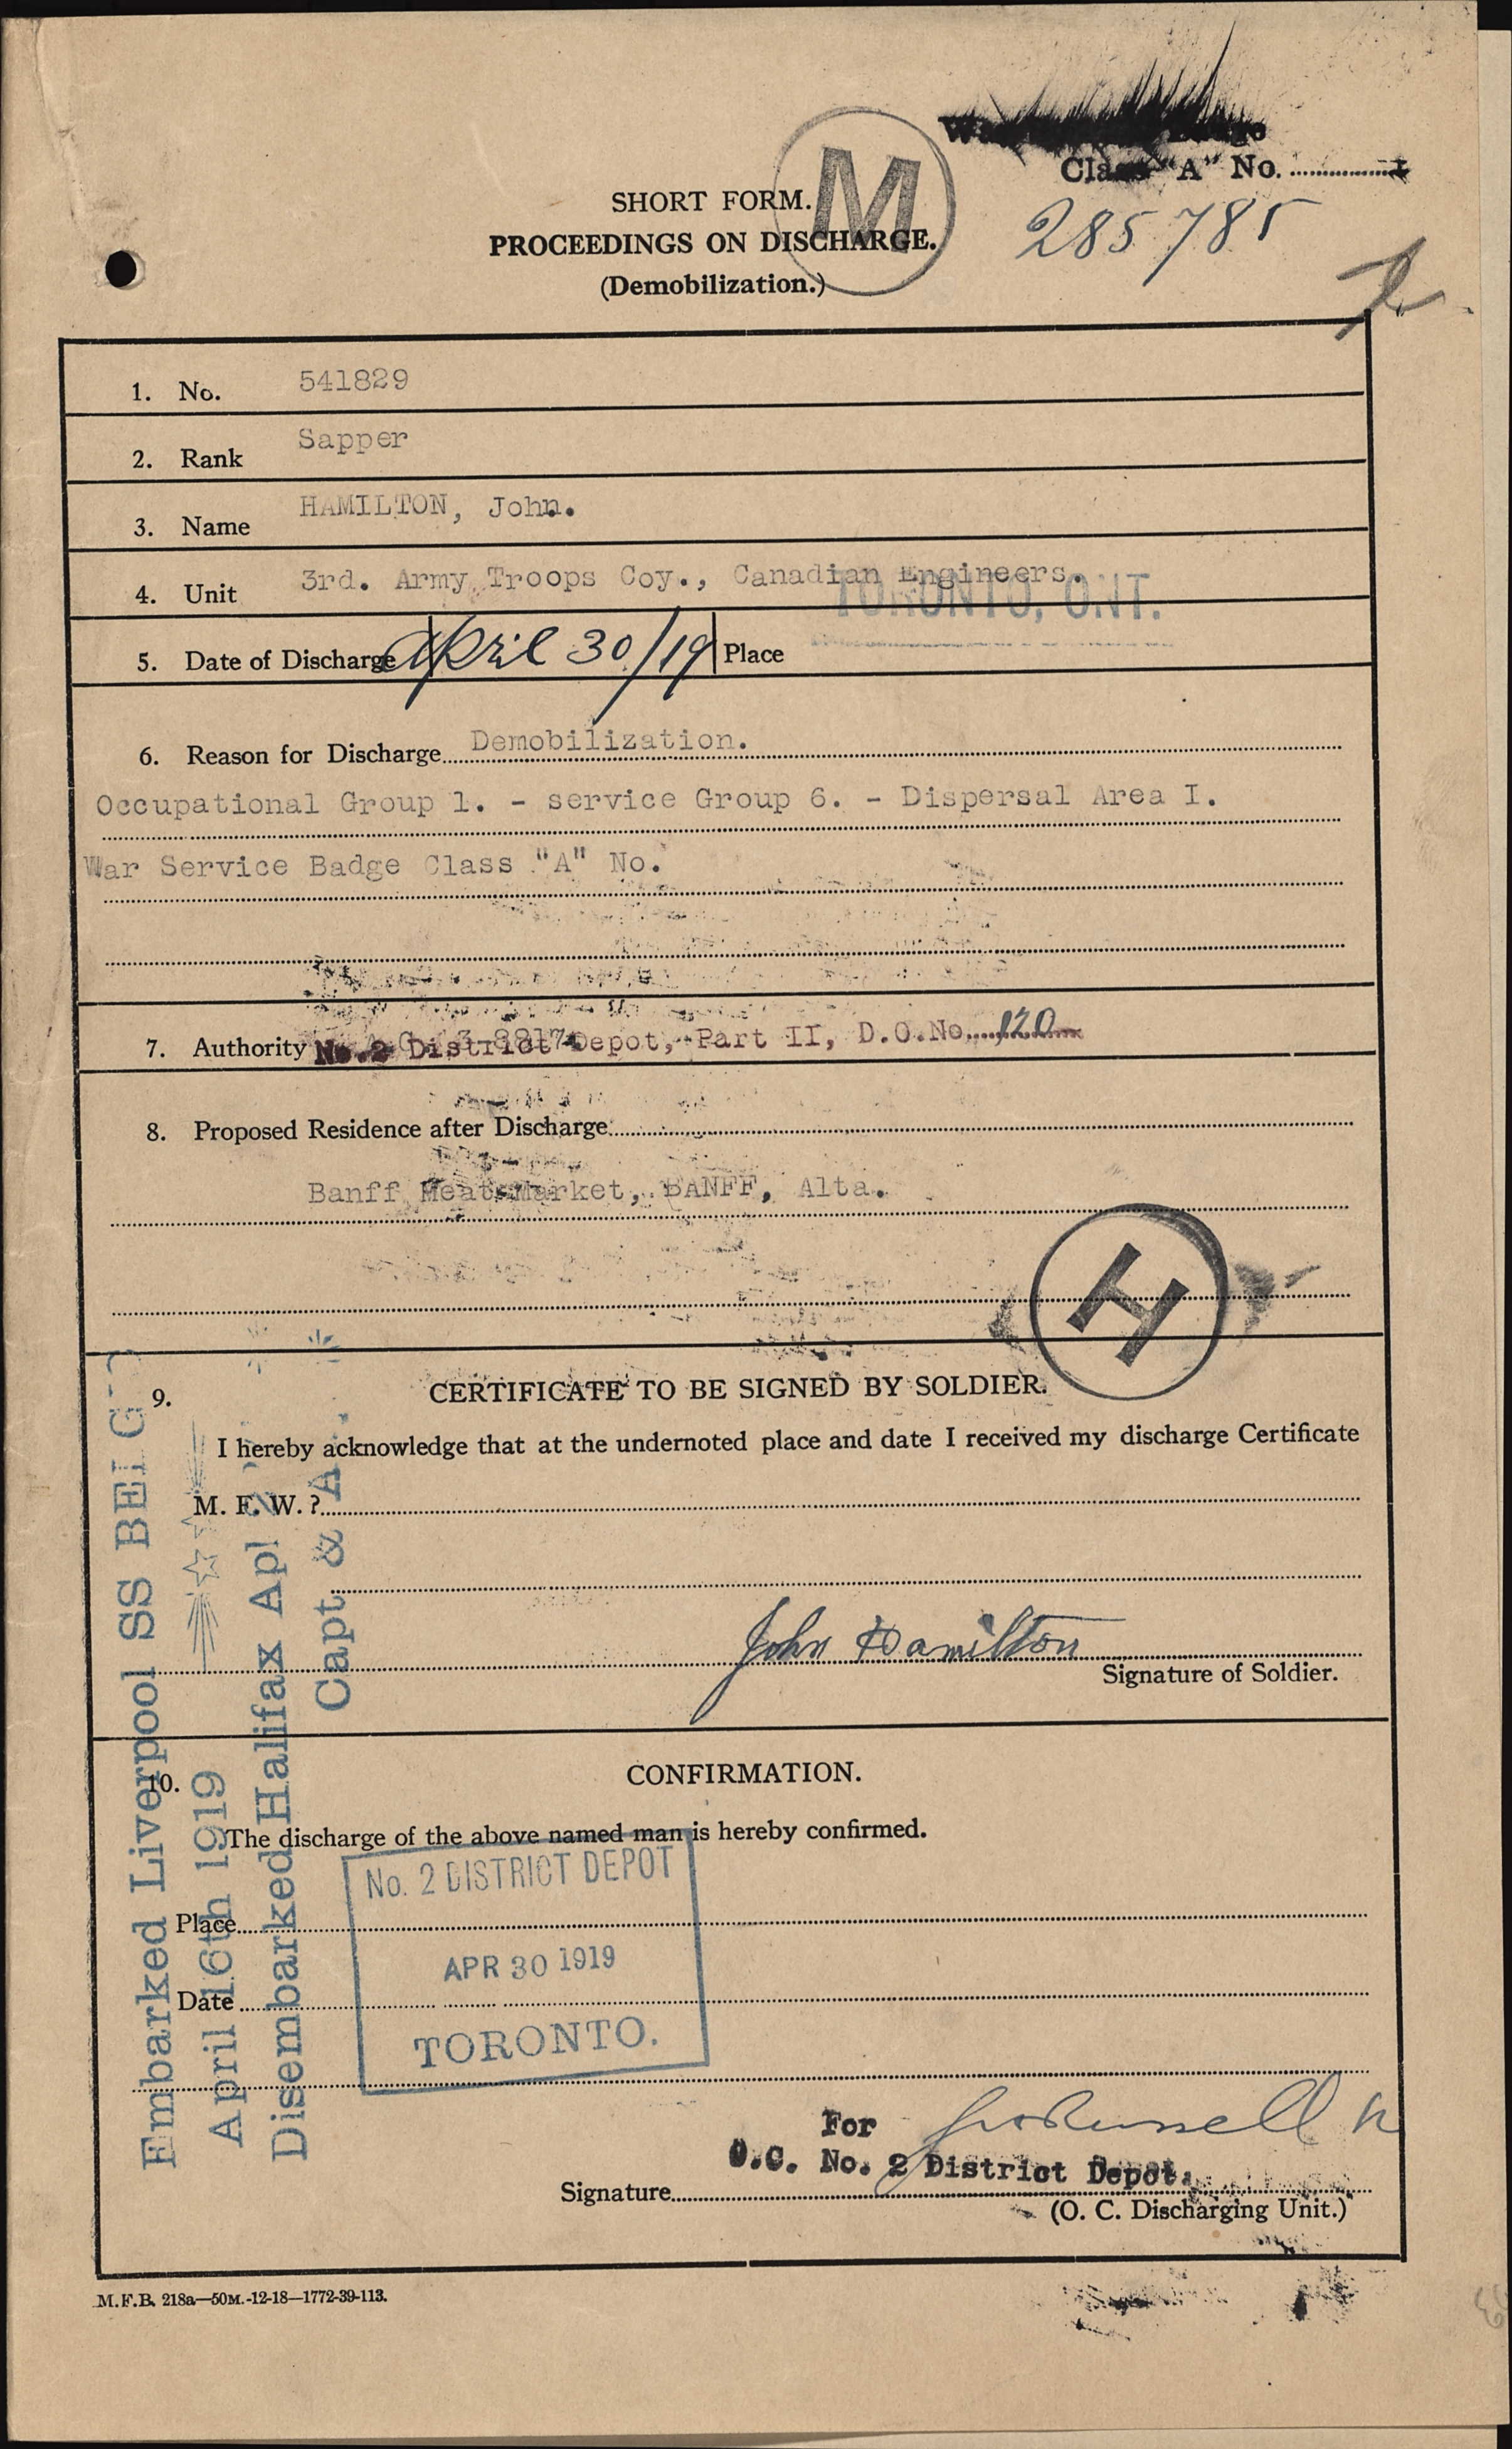 Class "A" No.
285785
M
SHORT FORM.
PROCEEDINGS ON DISCHARGE.
(Demobilization.)
1. No. 541829
2. Rank Sapper
3. Name HAMILTON, John.
4. Unit 3rd. Army Troops Coy., Canadian Engineers.
TORONTO, ONT.
5. Date of Discharge April 30/19 Place
6. Reason for Discharge Demobilization.
Occupational Group 1. - service Group 6. - Dispersal Area I.
War Service Badge Class "A" No.
7. Authority No. 2 District Depot, Part II, D.O. No. 120
8. Proposed Residence after Discharge
Banff Meat Market, BANFF, Alta.
H
9. CERTIFICATE TO BE SIGNED BY SOLDIER.
I hereby acknowledge that at the undernoted place and date I received my discharge Certificate
M. F. W. ?
John Hamilton
Signature of Soldier.
Embarked Liverpool SS
April 16th 1919
Disembarked Halifax Apl
Capt & A
10. CONFIRMATION.
The discharge of the above named man is hereby confirmed.
No. 2 DISTRICT DEPOT
Place
APR 30 1919
Date
TORONTO.
For
O.C. No. 2 District Depot.
Signature
(O. C. Discharging Unit.)
M.F.B. 218a—50M.-12-18—1772-39-113.